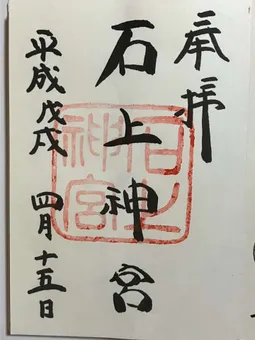 奉拝
石上神宮
平成戊戌 四月十五日
石上神宮